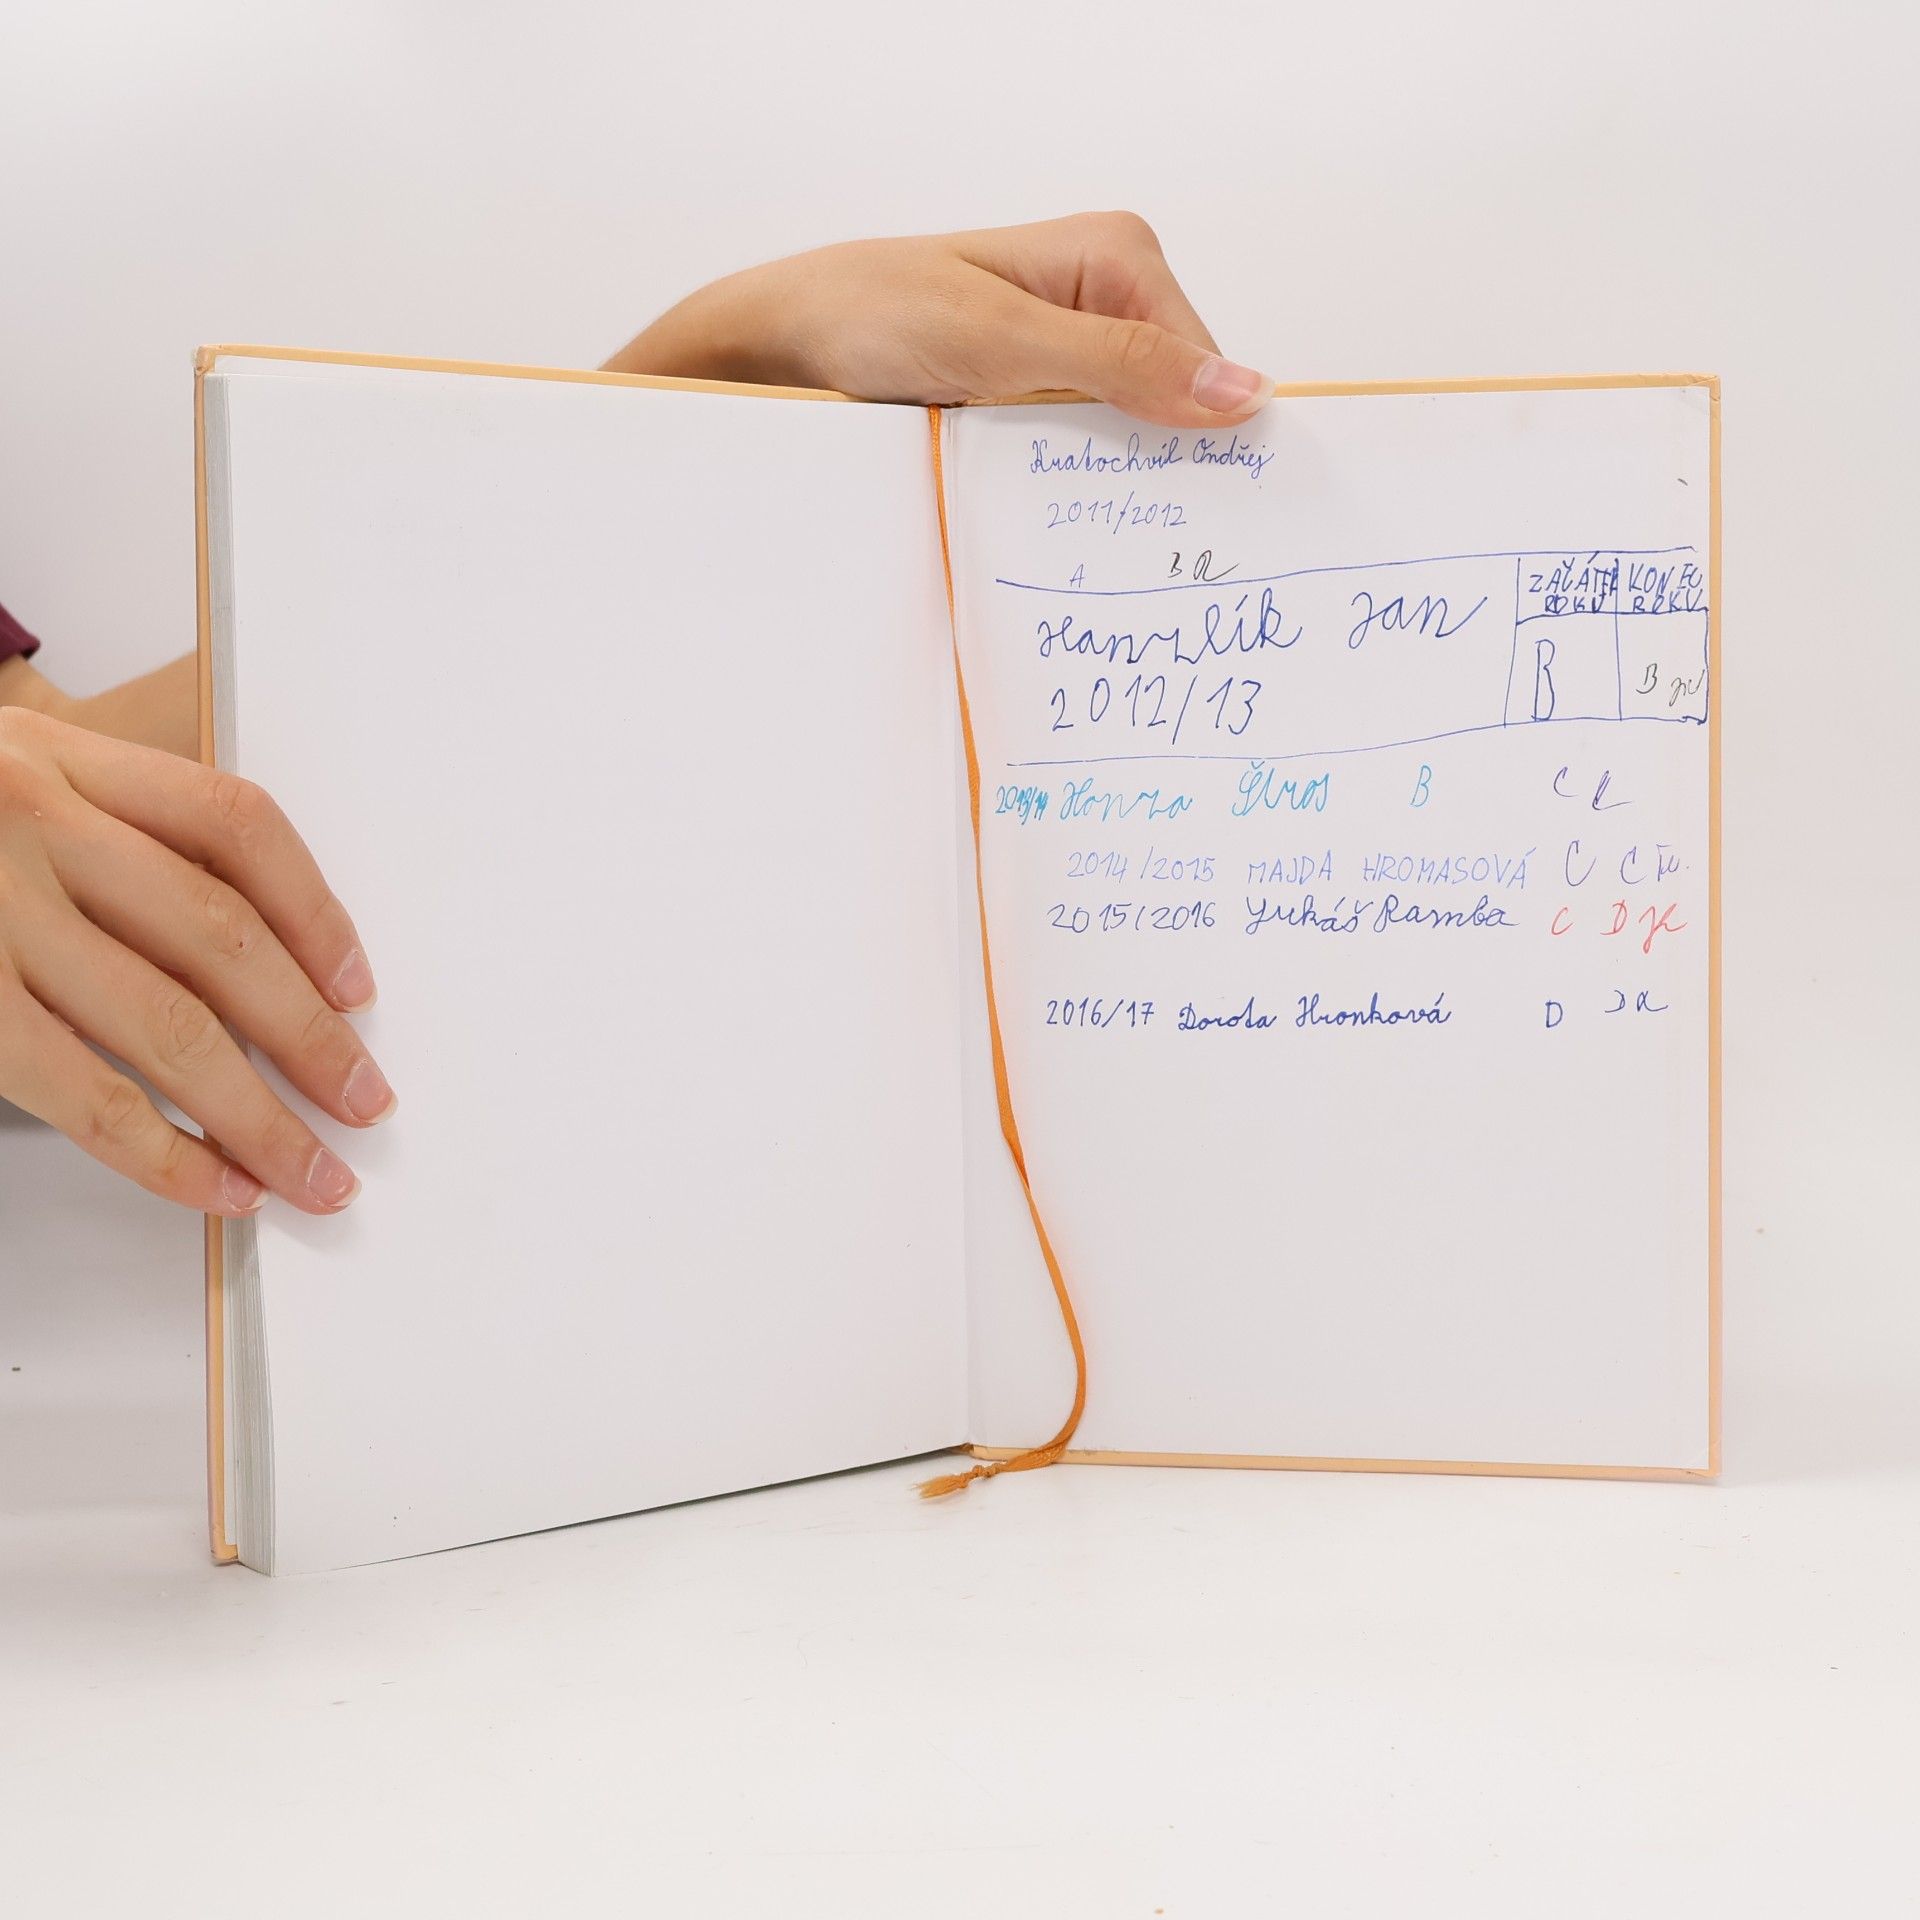 Kratochvíl Ondřej
2011/2012
A B
ZAČÁTEK ROKU KONEC ROKU
Hanzlík Jan B B
2012/13
2013/14 Honza Šturos B C
2014/2015 MAJDA HROMASOVÁ C C
2015/2016 Lukáš Ramba C D
2016/17 Dorota Hronková D D